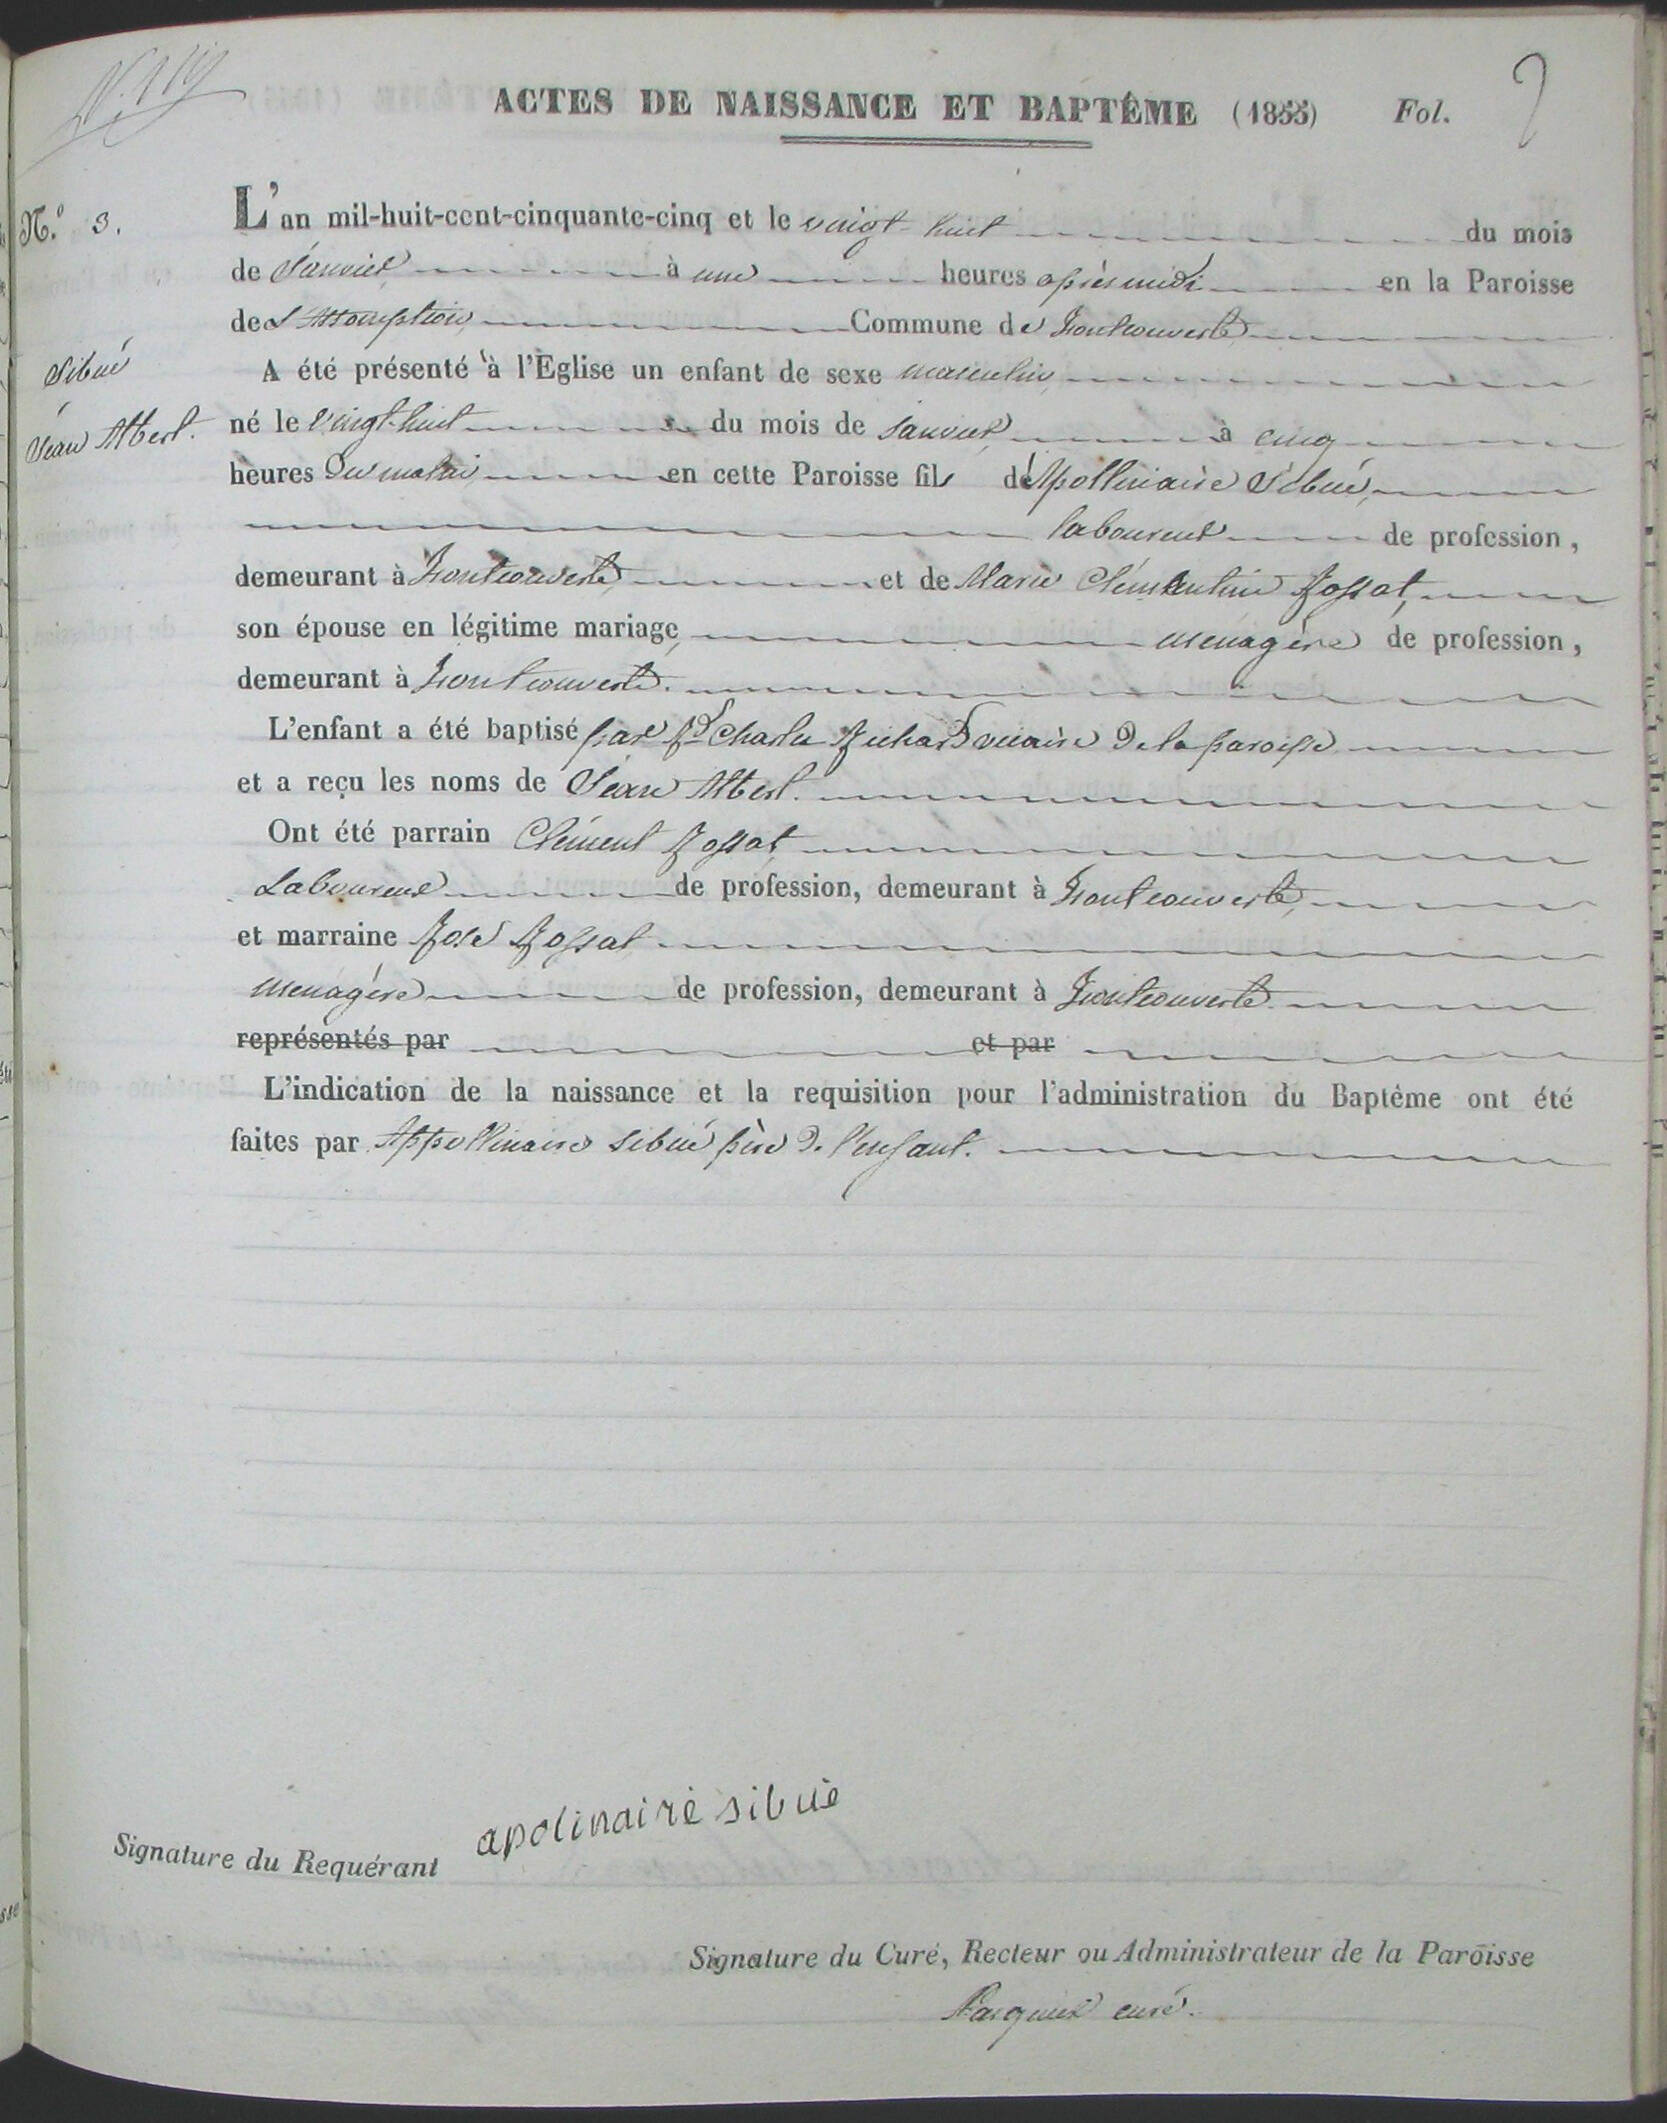 ACTES DE NAISSANCE ET BAPTÊME (1855) Fol.
N.º 3. L'an mil-huit-cent-cinquante-cinq et le vingt-huit du mois
de Janvier à une heures après midi en la Paroisse
de L'Assomption, Commune de Fontcouverte
Sibué
A été présenté à l'Eglise un enfant de sexe masculin,
Jean Albert.
né le vingt-huit du mois de Janvier à cinq
heures du matin en cette Paroisse fils de Apollinaire Sibué,
laboureur de profession,
demeurant à Fontcouverte, et de Marie Clémentine Rossat,
son épouse en légitime mariage, menagère de profession,
demeurant à Fontcouverte.
L'enfant a été baptisé par Rd Charles Richard vicaire de la paroisse
et a reçu les noms de Jean Albert.
Ont été parrain Clément Rossat
Laboureur de profession, demeurant à Fontcouverte,
et marraine Rose Rossat
menagère de profession, demeurant à Fontcouverte.
représentés par et par
L'indication de la naissance et la requisition pour l'administration du Baptême ont été
faites par Appollinaire Sibué père de l'enfant.
Signature du Requérant apolinaire sibué
Signature du Curé, Recteur ou Administrateur de la Paroisse
curé.